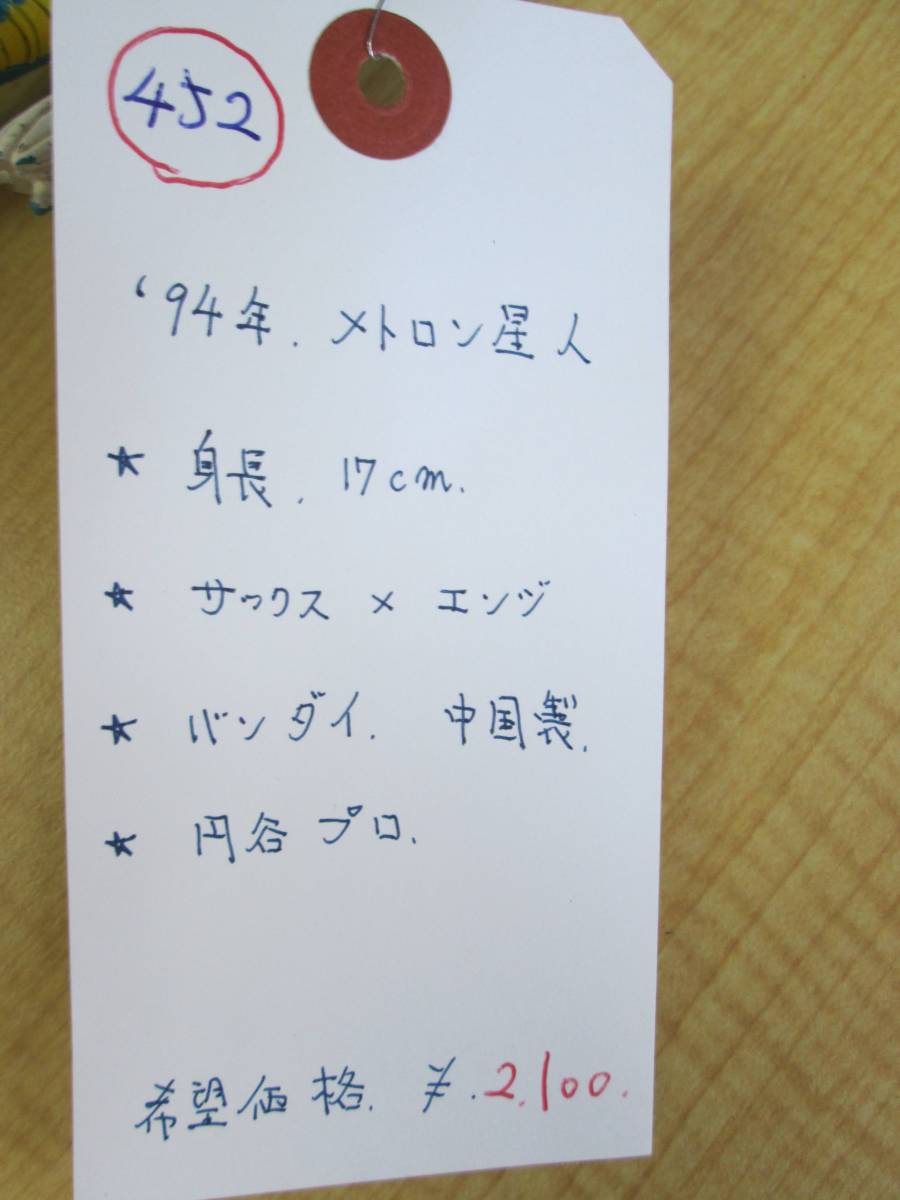 452
'94年. メトロン星人
★ 身長. 17cm.
★ サックス × エンジ
★ バンダイ. 中国製.
★ 円谷プロ.
希望価格. ¥.2,100.